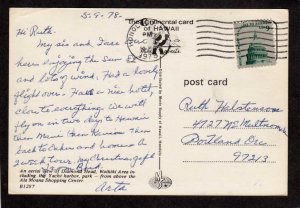 5-9-78.
Hi Ruth.
My sis and I are
here enjoying the sun
and lots of wind. Had a lovely
flight over. Have a nice hotel
close to everything. We will
fly on in two days to Hawaii
then Maui then Kauai then
back to Oahu and home. A
2 week tour. My Christmas gift
Arta
An aerial view of Diamond Head, Waikiki Area in-
cluding the Yacht harbor, park - from above the
Ala Moana Shopping Center
B1297
The Continental card
of HAWAII
HONOLULU
PM
1978
post card
Ruth
4727 NE
Portland Ore
97213